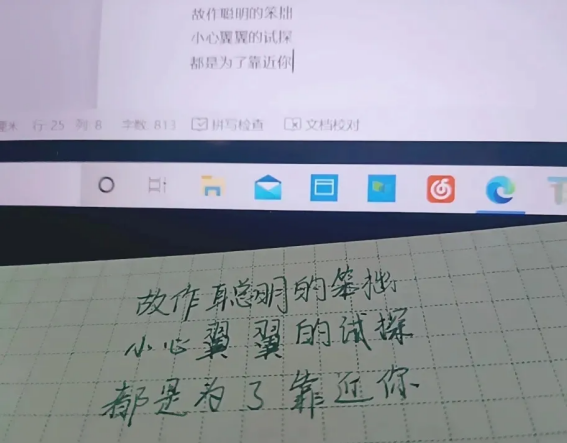 故作聪明的笨拙
小心翼翼的试探
都是为了靠近你
厘米 行: 25 列: 8 字数: 813 拼写检查 文档校对
故作聪明的笨拙
小心翼翼的试探
都是为了靠近你